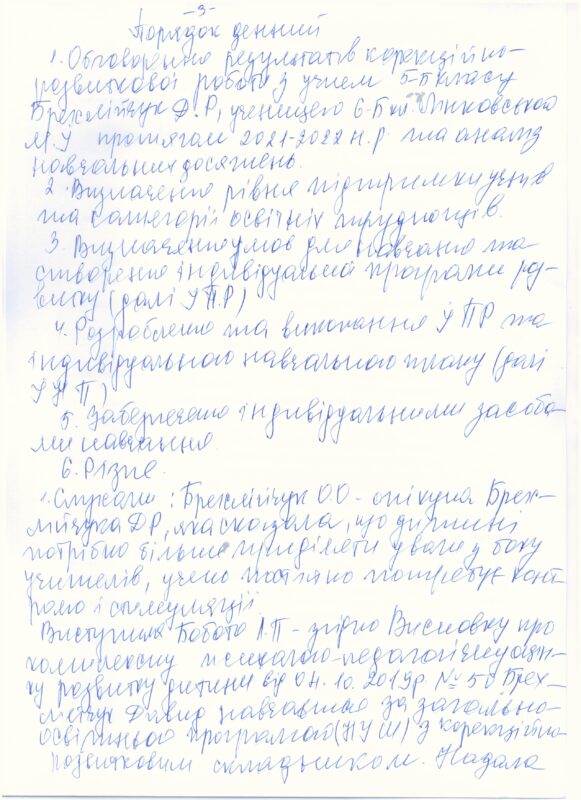 -3-
Порядок денний
1. Обговорення результатів корекційно-
розвиткової роботи з учнем 5-Б класу
Брехлійчук Д.Р, ученицею 6-Б кл.
М.У протягом 2021-2022 н.р. та аналіз
навчальних досягнень.
2. Визначення рівня підтримки учнів
та категорії освітніх труднощів.
3. Визначення умов для навчання та
створення індивідуальної програми роз-
витку (далі ІПР)
4. Розроблення та виконання ІПР та
індивідуального навчального плану (далі
ІНП)
5. Забезпечення індивідуальними засоба-
ми навчання
6. Різне.
1. Слухали: Брехлійчук О.О - опікуна Брех-
лійчука Д.Р, яка сказала, що дитині
потрібно більше приділяти уваги з боку
учителів, учень постійно потребує конт-
ролю і стимуляції.
Виступила Бабота Л.П - згідно Висновку про
комплексну психолого-педагогічну оцін-
ку розвитку дитини від 04.10.2019р № 50 Брех-
лійчук Давид навчався за загально-
освітньою програмою (НУШ) з корекційно
розвитковим складником. Надала